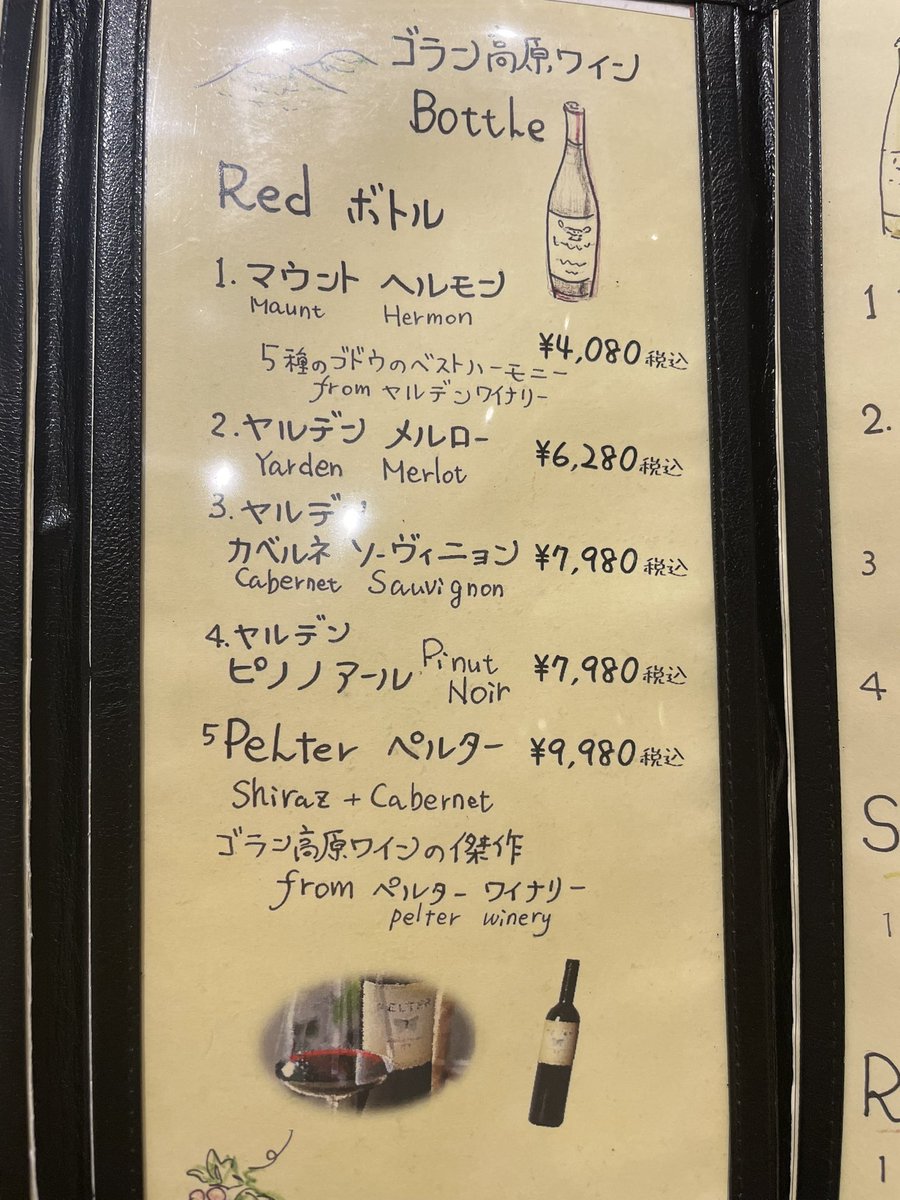 ゴラン高原ワイン
Bottle
Red ボトル
1. マウント ヘルモン
Maunt Hermon
¥4,080 税込
5種のブドウのベストハーモニー
from ヤルデンワイナリー
2. ヤルデン メルロー
Yarden Merlot
¥6,280 税込
3. ヤルデン
カベルネ ソーヴィニョン ¥7,980 税込
Cabernet Sauvignon
4. ヤルデン
ピノノアール Pinut Noir ¥7,980 税込
5 Pelter ペルター ¥9,980 税込
Shiraz + Cabernet
ゴラン高原ワインの傑作
from ペルター ワイナリー
pelter winery
PELTER
1
2.
3
4
S
1
R
1